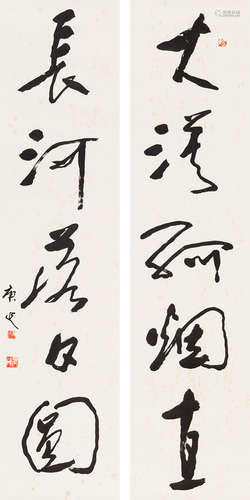 大漠孤烟直
長河落日圓
庚延